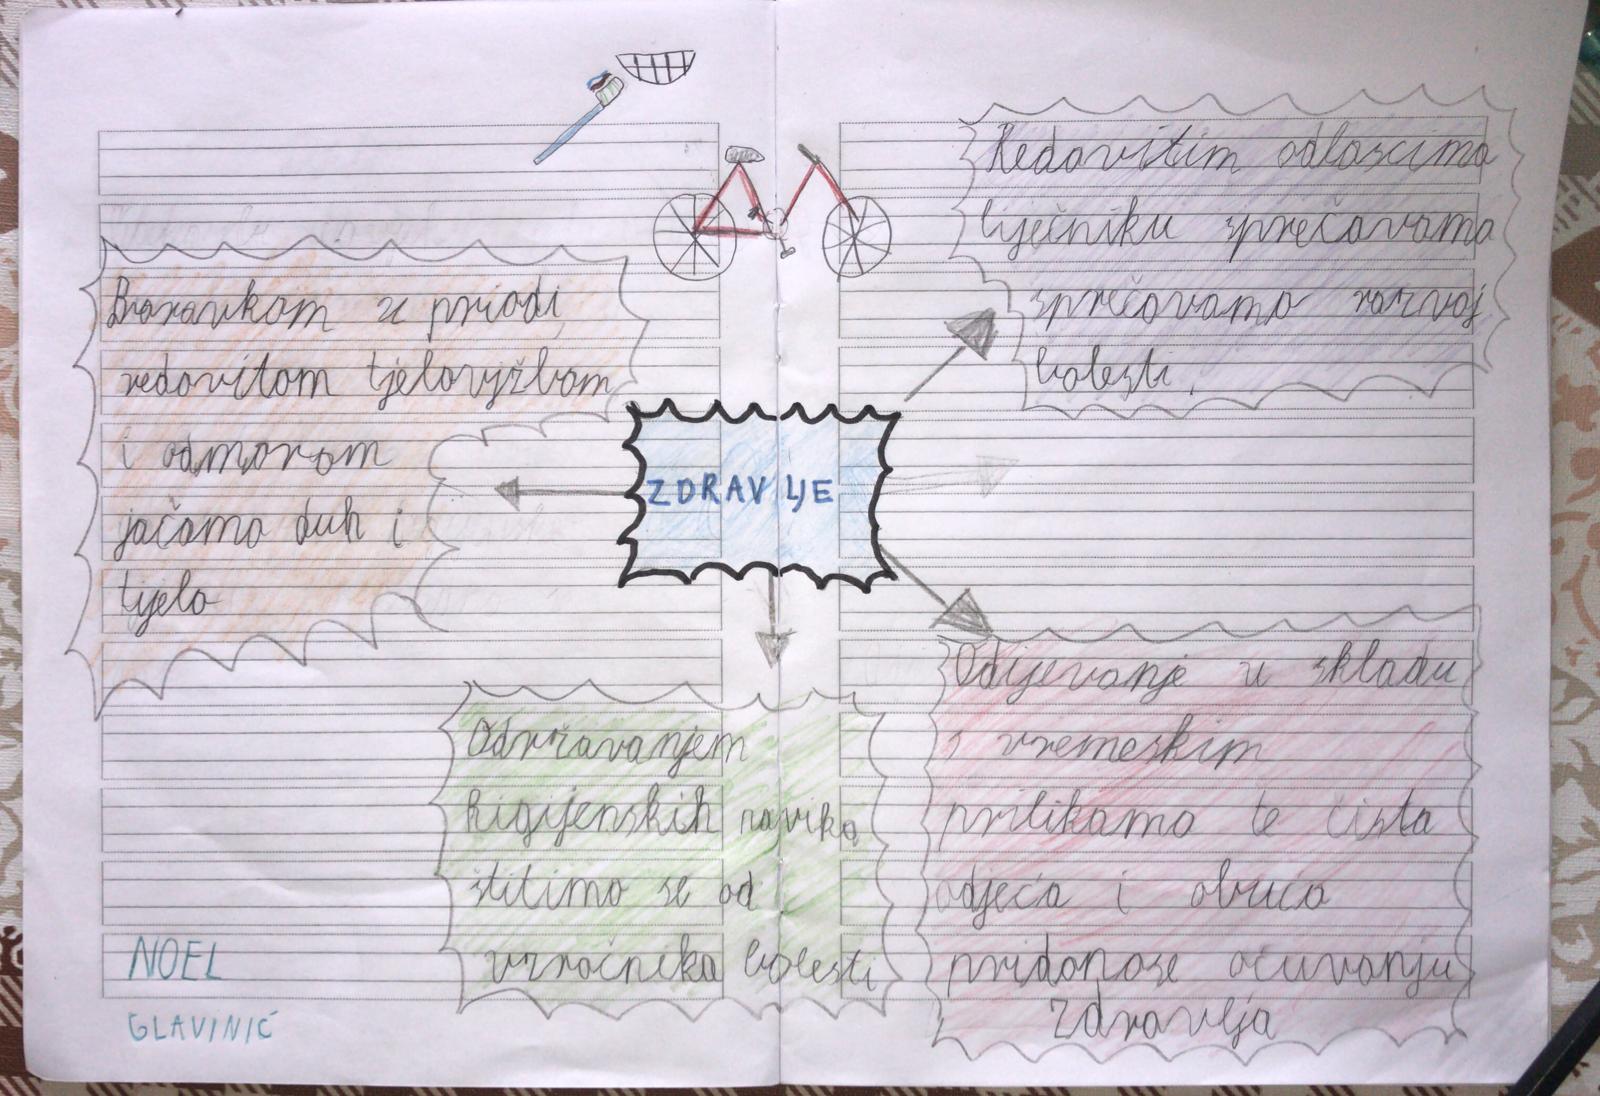 Redovitim odlascima
liječniku sprečavamo
sprečavamo razvoj
bolesti.
Boravkom u priodi,
redovitom tjelovježbom
i odmorom
jačamo duh i
tijelo
ZDRAVLJE
Odijevanje u skladu
s vremeskim
prilikama te čista
odjeća i obuća
pridonose očuvanju
zdravlja
Održavanjem
higijenskih navika
štitimo se od
uzročnika bolesti
NOEL
GLAVINIĆ